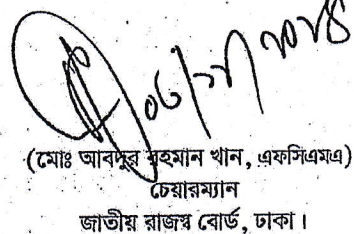 (মোঃ আবদুর রহমান খান, এফসিএমএ)
চেয়ারম্যান
জাতীয় রাজস্ব বোর্ড, ঢাকা।